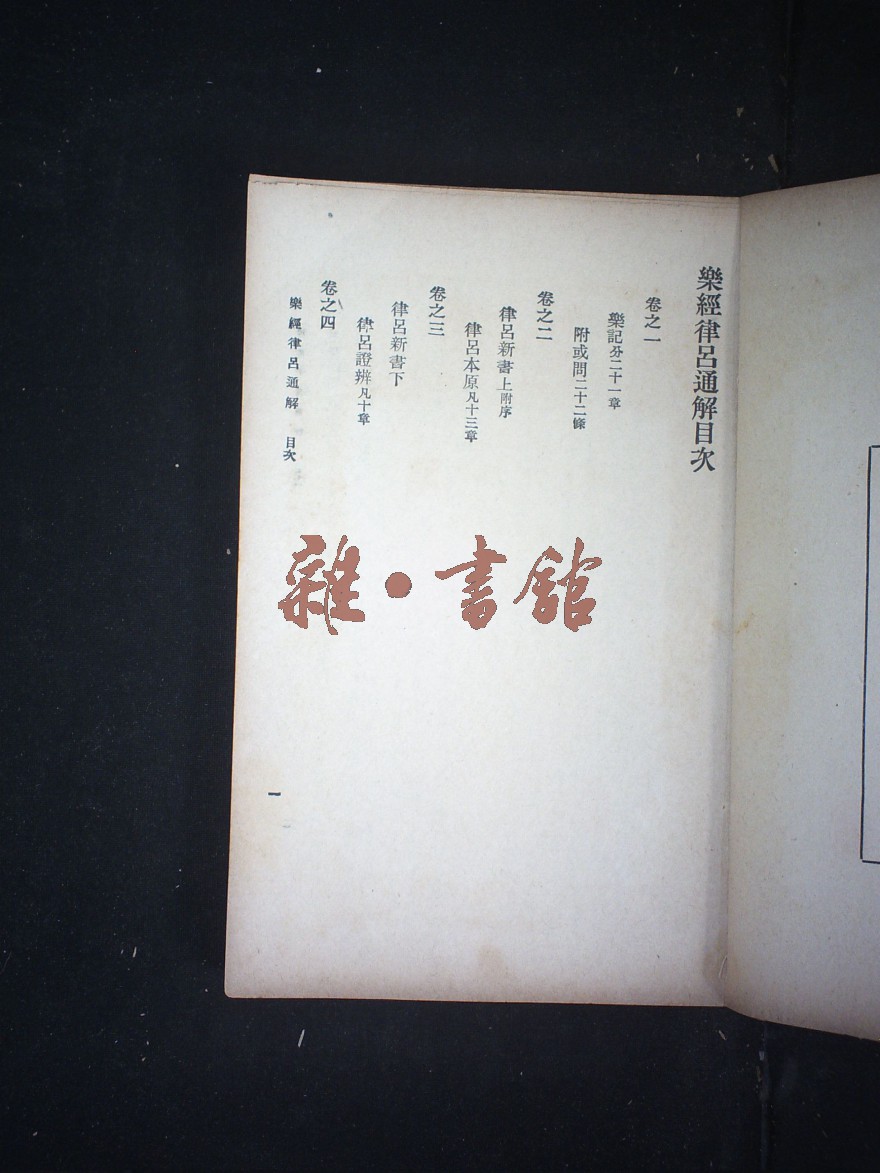 樂經律呂通解目次
卷之一
樂記分二十一章
附或問二十二條
卷之二
律呂新書上附序
律呂本原凡十三章
卷之三
律呂新書下
律呂證辨凡十章
卷之四
樂經律呂通解 目次
一
雜·書館